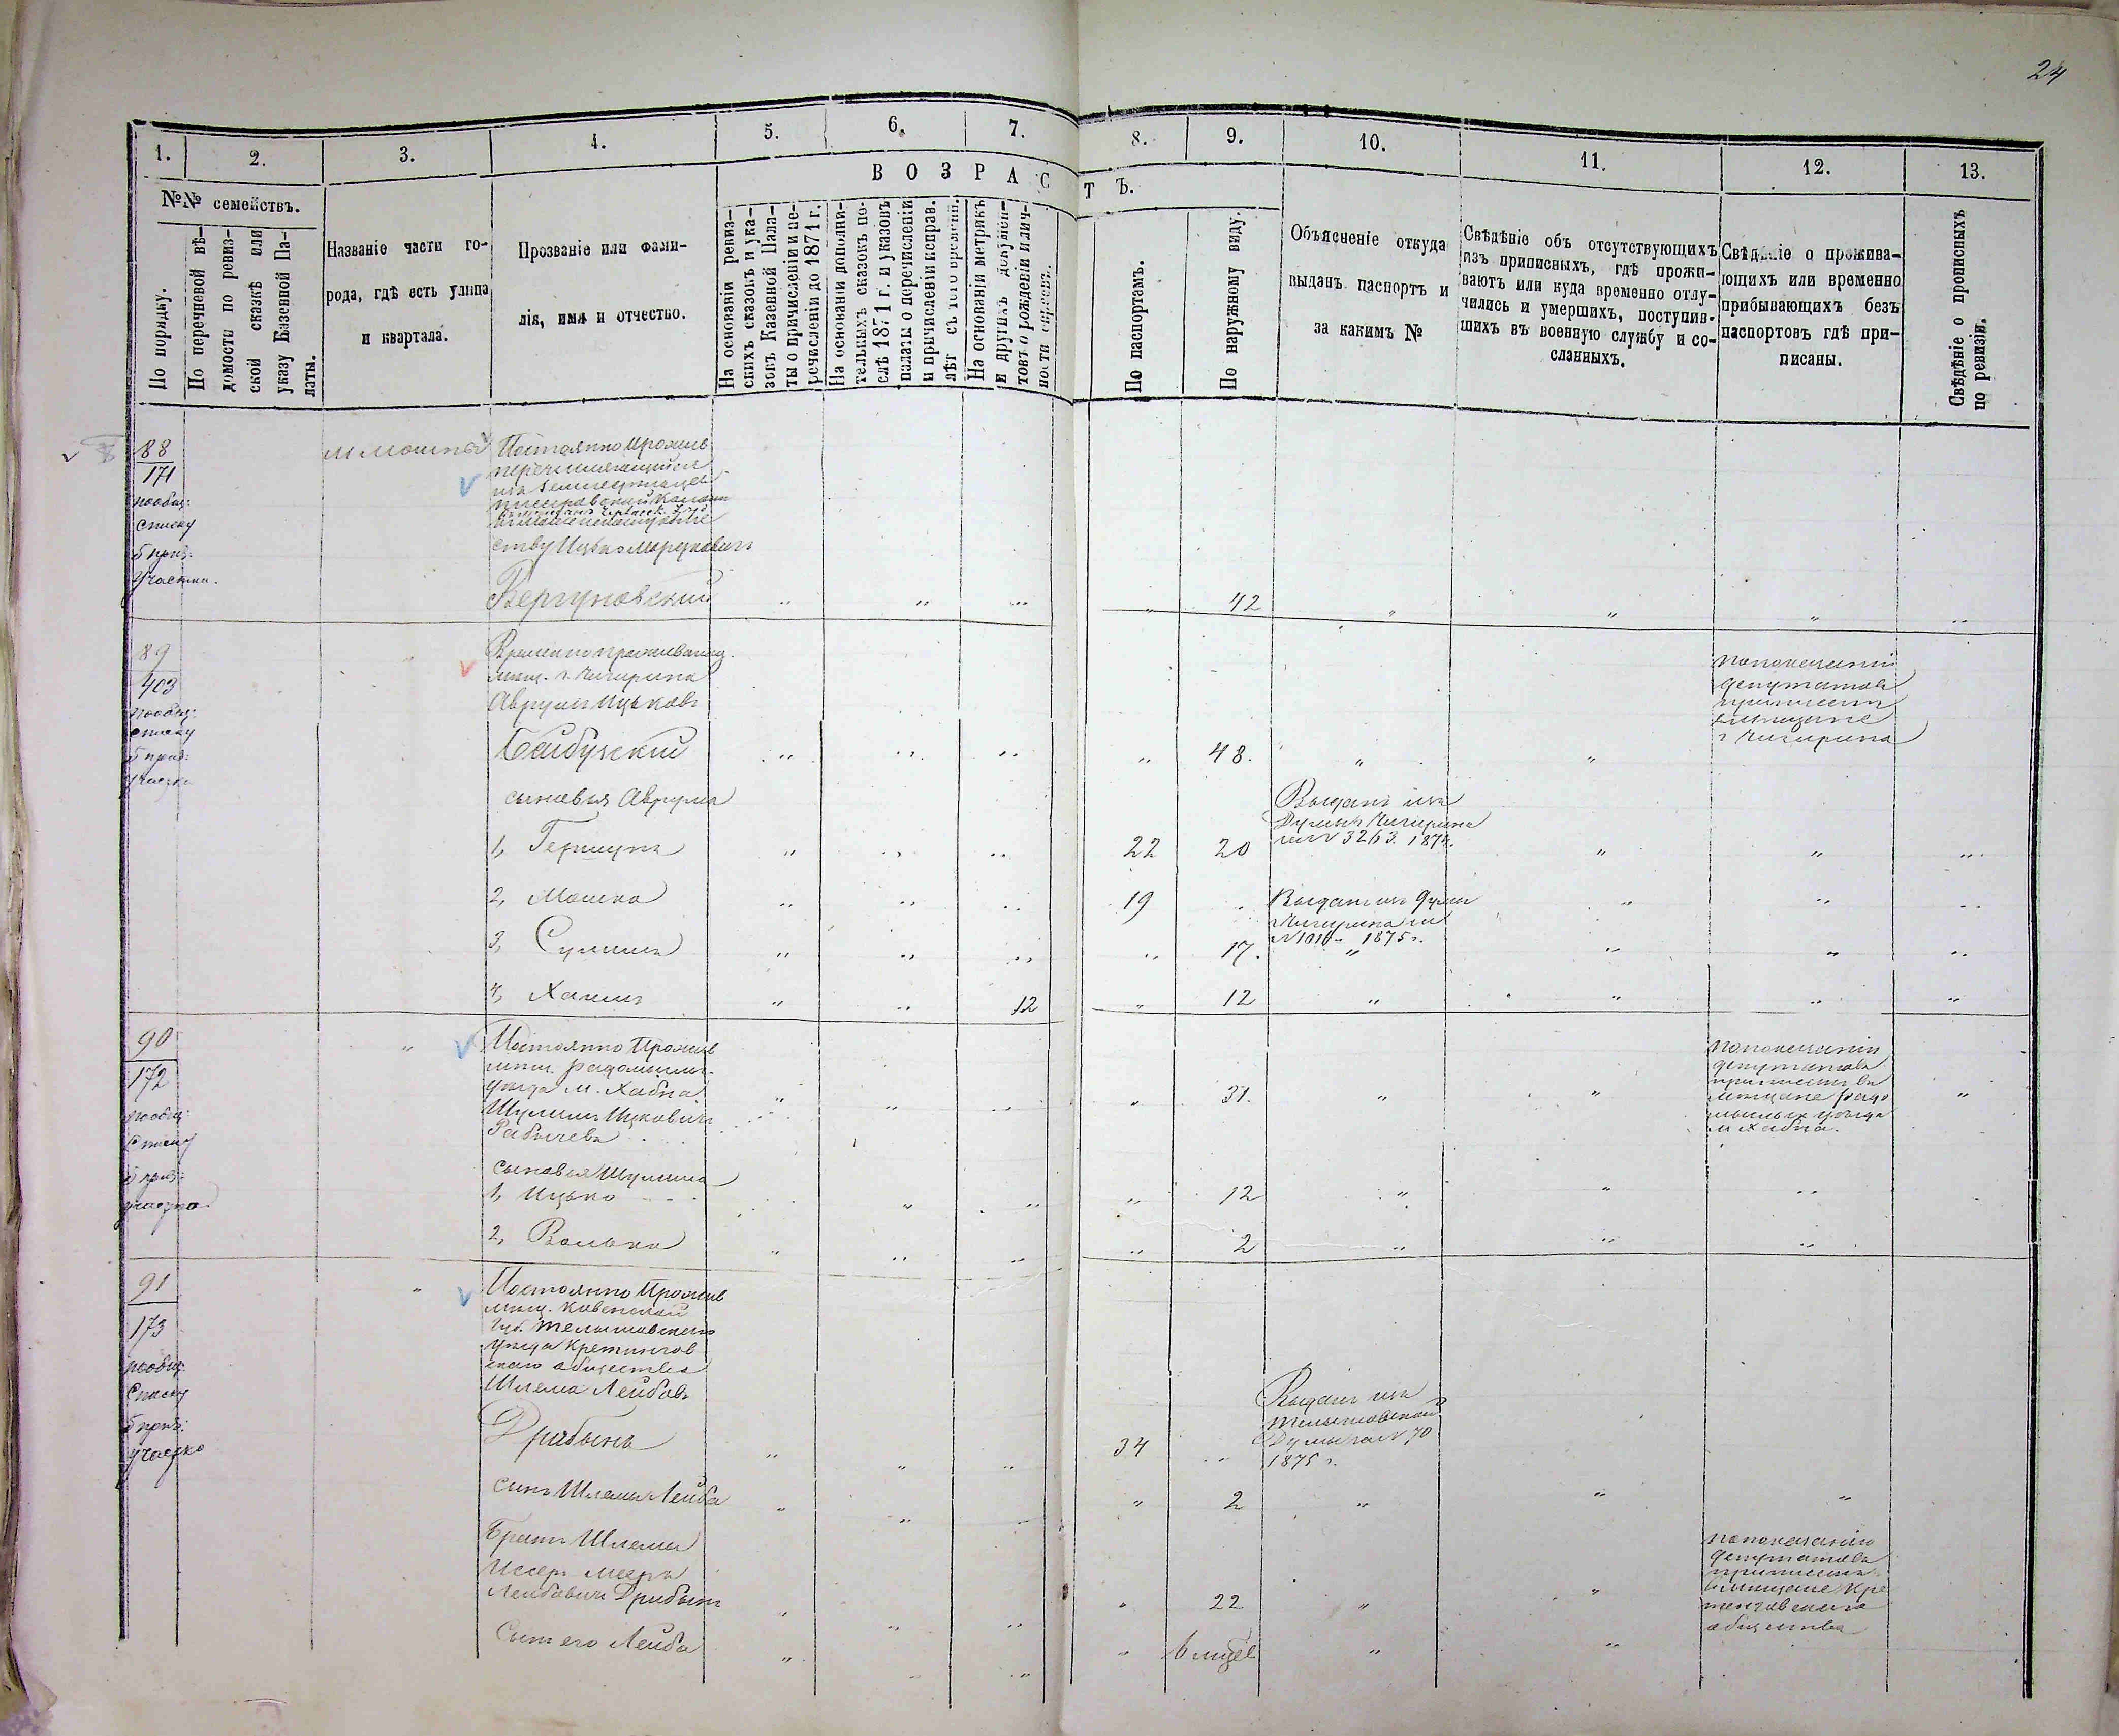 24
1. 2. 3. 4. 5. 6. 7. 8. 9. 10. 11. 12. 13.
№№ семействъ.
По порядку.
По перечневой вѣ-
домости по ревиз-
ской сказкѣ или
указу Казенной Па-
латы.
Названіе части го-
рода, гдѣ есть улица
и квартала.
Прозваніе или фами-
лія, имя и отчество.
ВОЗРАСТЪ.
На основаніи ревиз-
скихъ сказокъ и ука-
зовъ Казенной Пала-
ты о причисленіи и пе-
речисленіи до 1871 г.
На основаніи дополни-
тельныхъ сказокъ по-
слѣ 1871 г. и указовъ
палаты о перечисленіи
и причисленіи исправ.
лѣт съ того времени.
На основаніи метрикъ
и другихъ докумен-
товъ о рожденіи и лич-
ности еврeевъ.
По паспортамъ.
По наружному виду.
Объясненіе откуда
выданъ паспортъ и
за какимъ №
Свѣдѣніе объ отсутствующихъ
изъ приписныхъ, гдѣ прожи-
ваютъ или куда временно отлу-
чились и умершихъ, поступив-
шихъ въ военную службу и со-
сланныхъ.
Свѣдѣніе о прожива-
ющихъ или временно
прибывающихъ безъ
паспортовъ гдѣ при-
писаны.
Свѣдѣніе о прописныхъ
по ревизіи.
88
171
пообщ:
списку
5 приз:
Участка.
м Мошны
Постоянно Прожив
перечисляющійся
изъ земледѣльцев
ству Ицько Мордковичъ
Вергуновский " " " " 42 " " " "
89
403
пообщ:
списку
5 приз:
Участка
Временно проживающ.
мѣщ. г. Чигирина
Аврумъ Ицьковъ
Байбузский " " " " 48. " "
по показанію
депутатовъ
приписанъ
въ мѣщане
г Чигирина
сыновья Аврума
1, Гершунъ " " " 22 20
Выданъ изъ
Думы г. Чигирина
за № 3263. 1874. " " "
2, Мошко " " " 19 "
Выданъ изъ Думы
г Чигирина за
№ 1010 1875 г. " " "
3, Сулимъ " " " " 17. " " " "
4, Хаимъ " " 12 " 12 " " " "
90
172
пообщ:
Списку
5 приз:
участка
"
Постоянно Прожив
мѣщ. Радомысльс.
уѣзда м. Хабна
Шулимъ Ицковичъ
Рабичевъ " " " " 31. " "
по показанію
депутатовъ
приписанъ въ
мѣщане Радо
мысльск уѣзда
м Хабна. "
сыновья Шулима
1, Ицько " " " 12 " " "
2, Волько " " " " 2 " " "
91
173
пообщ:
Списку
5 приз:
участка
"
Постоянно Прожив
мѣщ. Ковенской
Губ. Тельшевскаго
уѣзда Кретингов
скаго общества
Шлема Лейбовъ
Дрибинъ " " " 34 "
Выданъ изъ
Тельшовской
Думы за № 70
1875 г.
Сынъ Шлемы Лейба " " " " 2 " " "
Братъ Шлемы
Иссеръ Мееръ
Лейбовичъ Дрибинъ " " " " 22 " "
по показанію
депутатовъ
приписанъ
въ мѣщане Кре
тенговскаго
общества
Сынъ его Лейба " " " " 6 мѣсе " "